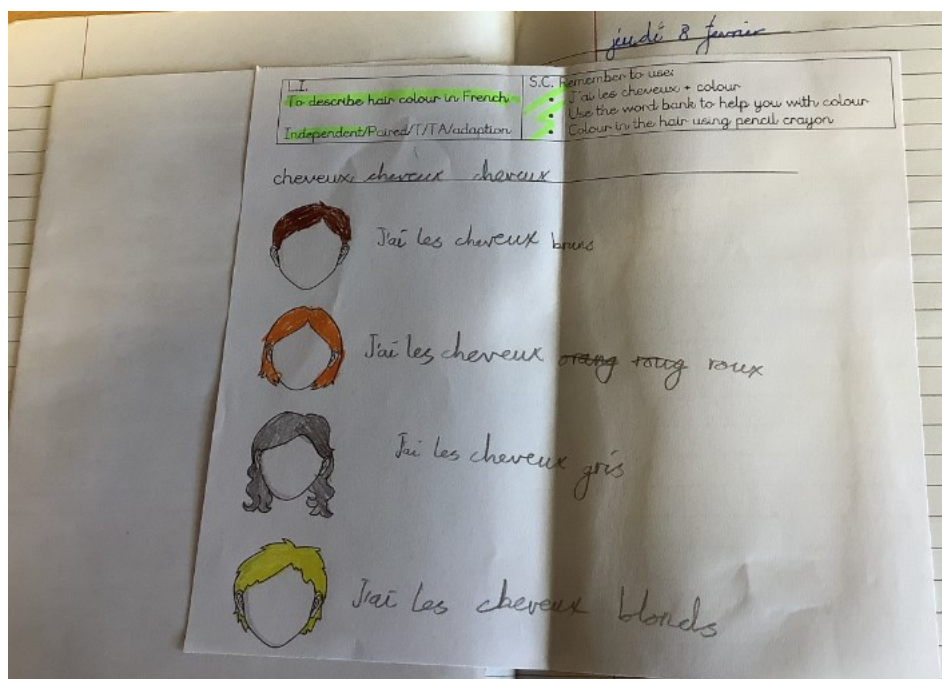 jeudi 8 fevrier
L.I.
To describe hair colour in French
Independent/Paired/T/TA/adaption
S.C. Remember to use:
• J'ai les cheveux + colour
• Use the word bank to help you with colour
• Colour in the hair using pencil crayon
cheveux cheveux cheveux
J'ai les cheveux bruns
J'ai les cheveux orang roug roux
J'ai les cheveux gris
J'ai les cheveux blonds